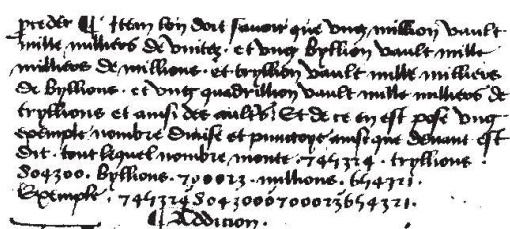 preder ¶ Item lon doit savoir que ung million vault
mille milliers de unitez . et ung byllion vault mille
milliers de millions . et tryllion vault mille milliers
de byllions . et ung quadrillion vault mille milliers de
tryllions et ainsi des aultres / Et de ce en est pose ung
exemple nombre divise et punctoye ainsi que devant est
dit . tout lequel nombre monte . 745324 . tryllions .
804300 . byllions . 700023 . millions . 654321 .
Exemple . 745324804300700023654321 .
¶ Addicion .